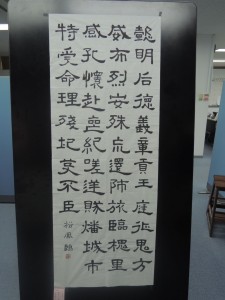 懿明后德義章貢王庭征鬼方
威布烈安殊荒還師旅臨槐里
感孔懷赴喪紀嗟逆賊燔城市
特受命理殘圮芟不臣
臨